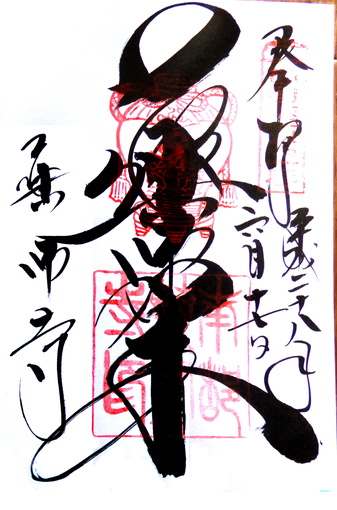 奉拝
平成二十八年
六月十七日
薬師如来
薬師寺